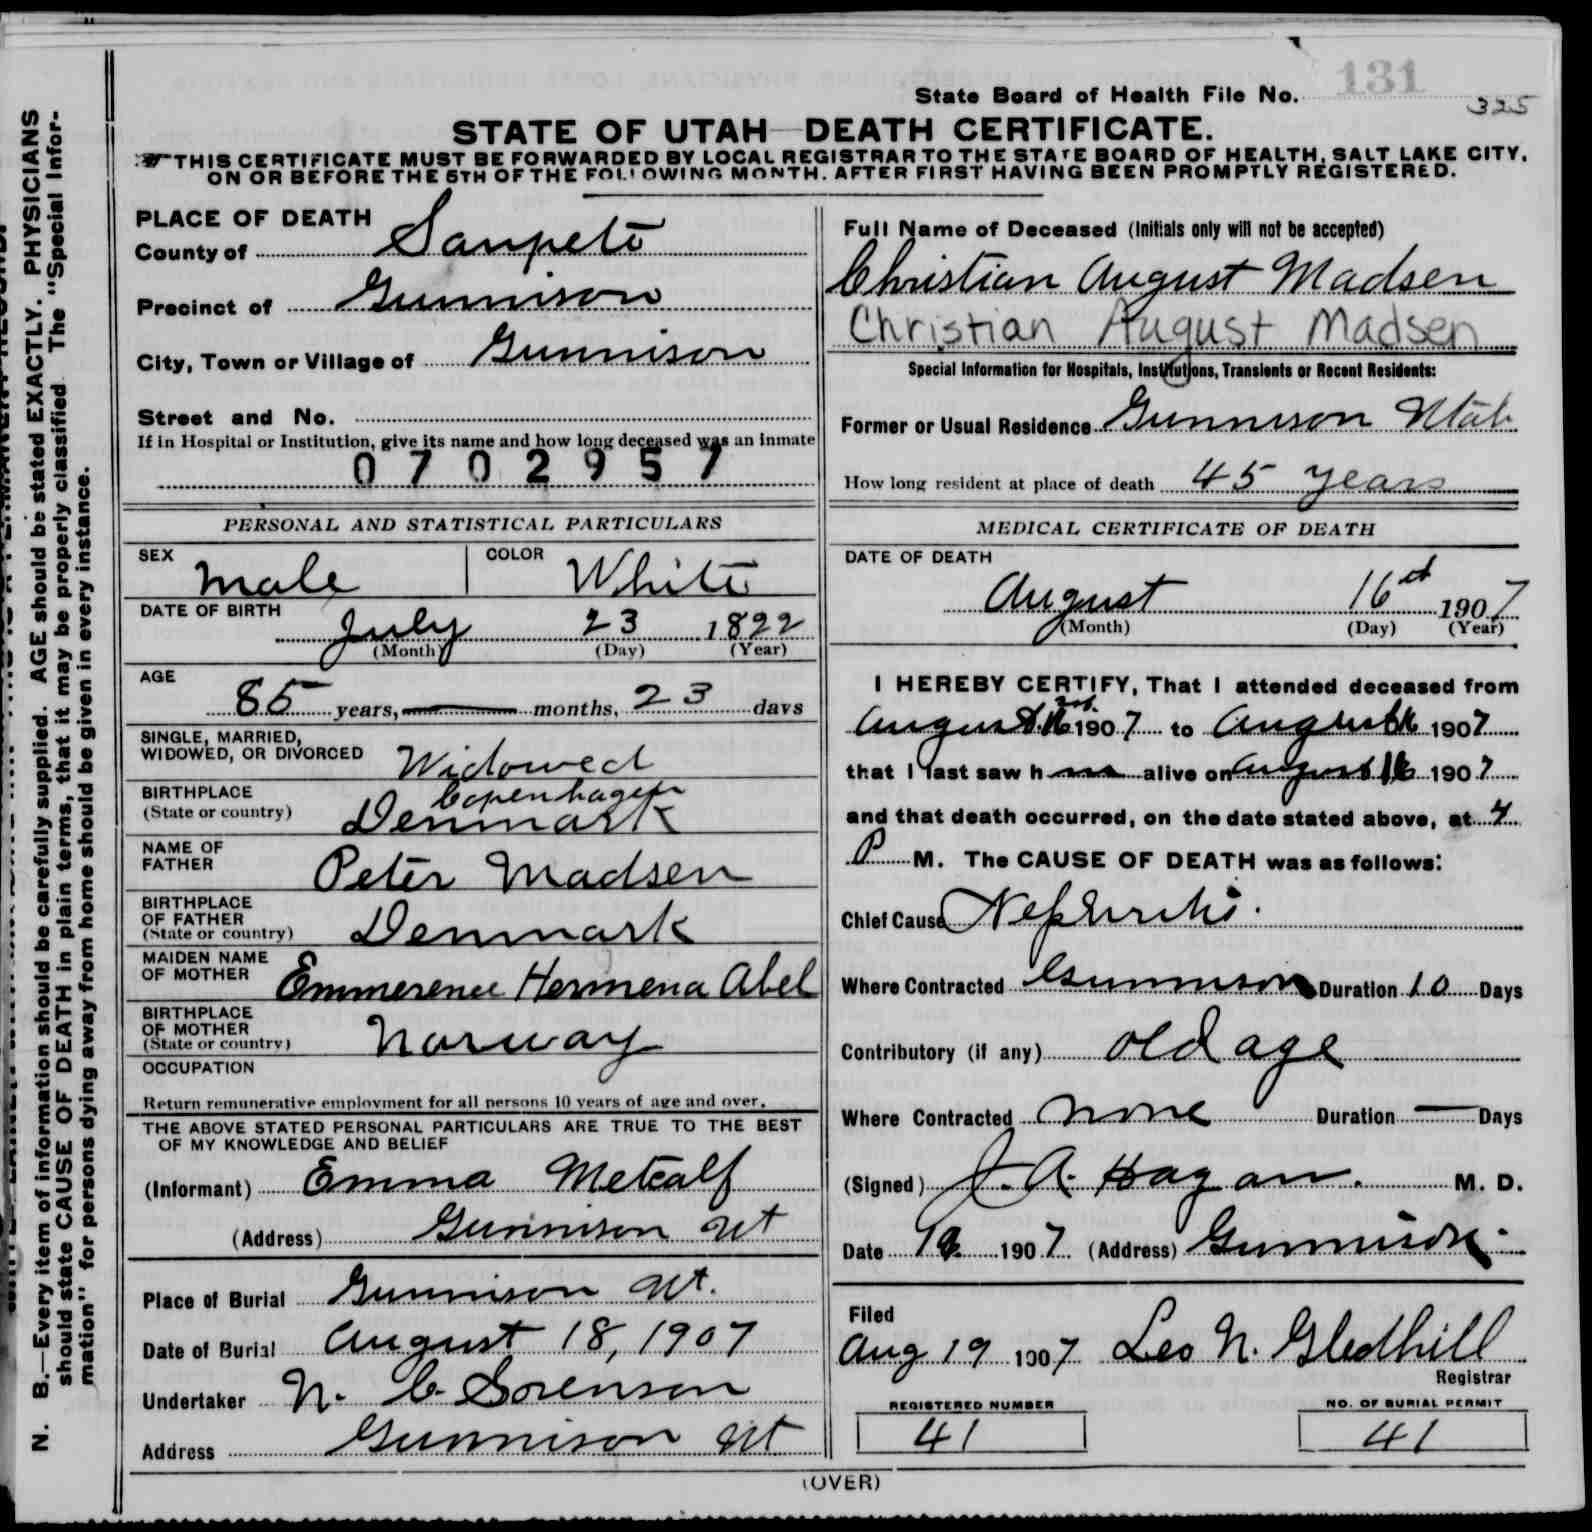 131
State Board of Health File No. 325
STATE OF UTAH—DEATH CERTIFICATE.
THIS CERTIFICATE MUST BE FORWARDED BY LOCAL REGISTRAR TO THE STATE BOARD OF HEALTH, SALT LAKE CITY,
ON OR BEFORE THE 5TH OF THE FOLLOWING MONTH, AFTER FIRST HAVING BEEN PROMPTLY REGISTERED.
PLACE OF DEATH
County of Sanpete
Precinct of Gunnison
City, Town or Village of Gunnison
Street and No.
If in Hospital or Institution, give its name and how long deceased was an inmate
0702957
PERSONAL AND STATISTICAL PARTICULARS
SEX Male COLOR White
DATE OF BIRTH
July 23 1822
(Month) (Day) (Year)
AGE
85 years, — months, 23 days
SINGLE, MARRIED,
WIDOWED, OR DIVORCED Widowed
BIRTHPLACE Copenhagen
(State or country) Denmark
NAME OF
FATHER Peter Madsen
BIRTHPLACE
OF FATHER
(State or country) Denmark
MAIDEN NAME
OF MOTHER Emmerence Hermena Abel
BIRTHPLACE
OF MOTHER
(State or country) Norway
OCCUPATION
Return remunerative employment for all persons 10 years of age and over.
THE ABOVE STATED PERSONAL PARTICULARS ARE TRUE TO THE BEST
OF MY KNOWLEDGE AND BELIEF
(Informant) Emma Metcalf
(Address) Gunnison Ut
Place of Burial Gunnison Ut.
Date of Burial August 18, 1907
Undertaker N. C. Sorenson
Address Gunnison Ut
Full Name of Deceased (Initials only will not be accepted)
Christian August Madsen
Christian August Madsen
Special Information for Hospitals, Institutions, Transients or Recent Residents:
Former or Usual Residence Gunnison Utah
How long resident at place of death 45 years
MEDICAL CERTIFICATE OF DEATH
DATE OF DEATH
August 16th 1907
(Month) (Day) (Year)
I HEREBY CERTIFY, That I attended deceased from
August 1907 to August 16 1907
that I last saw him alive on August 16 1907
and that death occurred, on the date stated above, at 4
P M. The CAUSE OF DEATH was as follows:
Chief Cause Nephritis.
Where Contracted Gunnison Duration 10 Days
Contributory (if any) old age
Where Contracted none Duration — Days
(Signed) J. A. Hagan. M. D.
Date 1907 (Address) Gunnison.
Filed
Aug 19 1907 Leo N. Gledhill
Registrar
REGISTERED NUMBER
41
NO. OF BURIAL PERMIT
41
(OVER)
N. B.—Every item of information should be carefully supplied. AGE should be stated EXACTLY. PHYSICIANS
should state CAUSE OF DEATH in plain terms, that it may be properly classified. The "Special Infor-
mation" for persons dying away from home should be given in every instance.